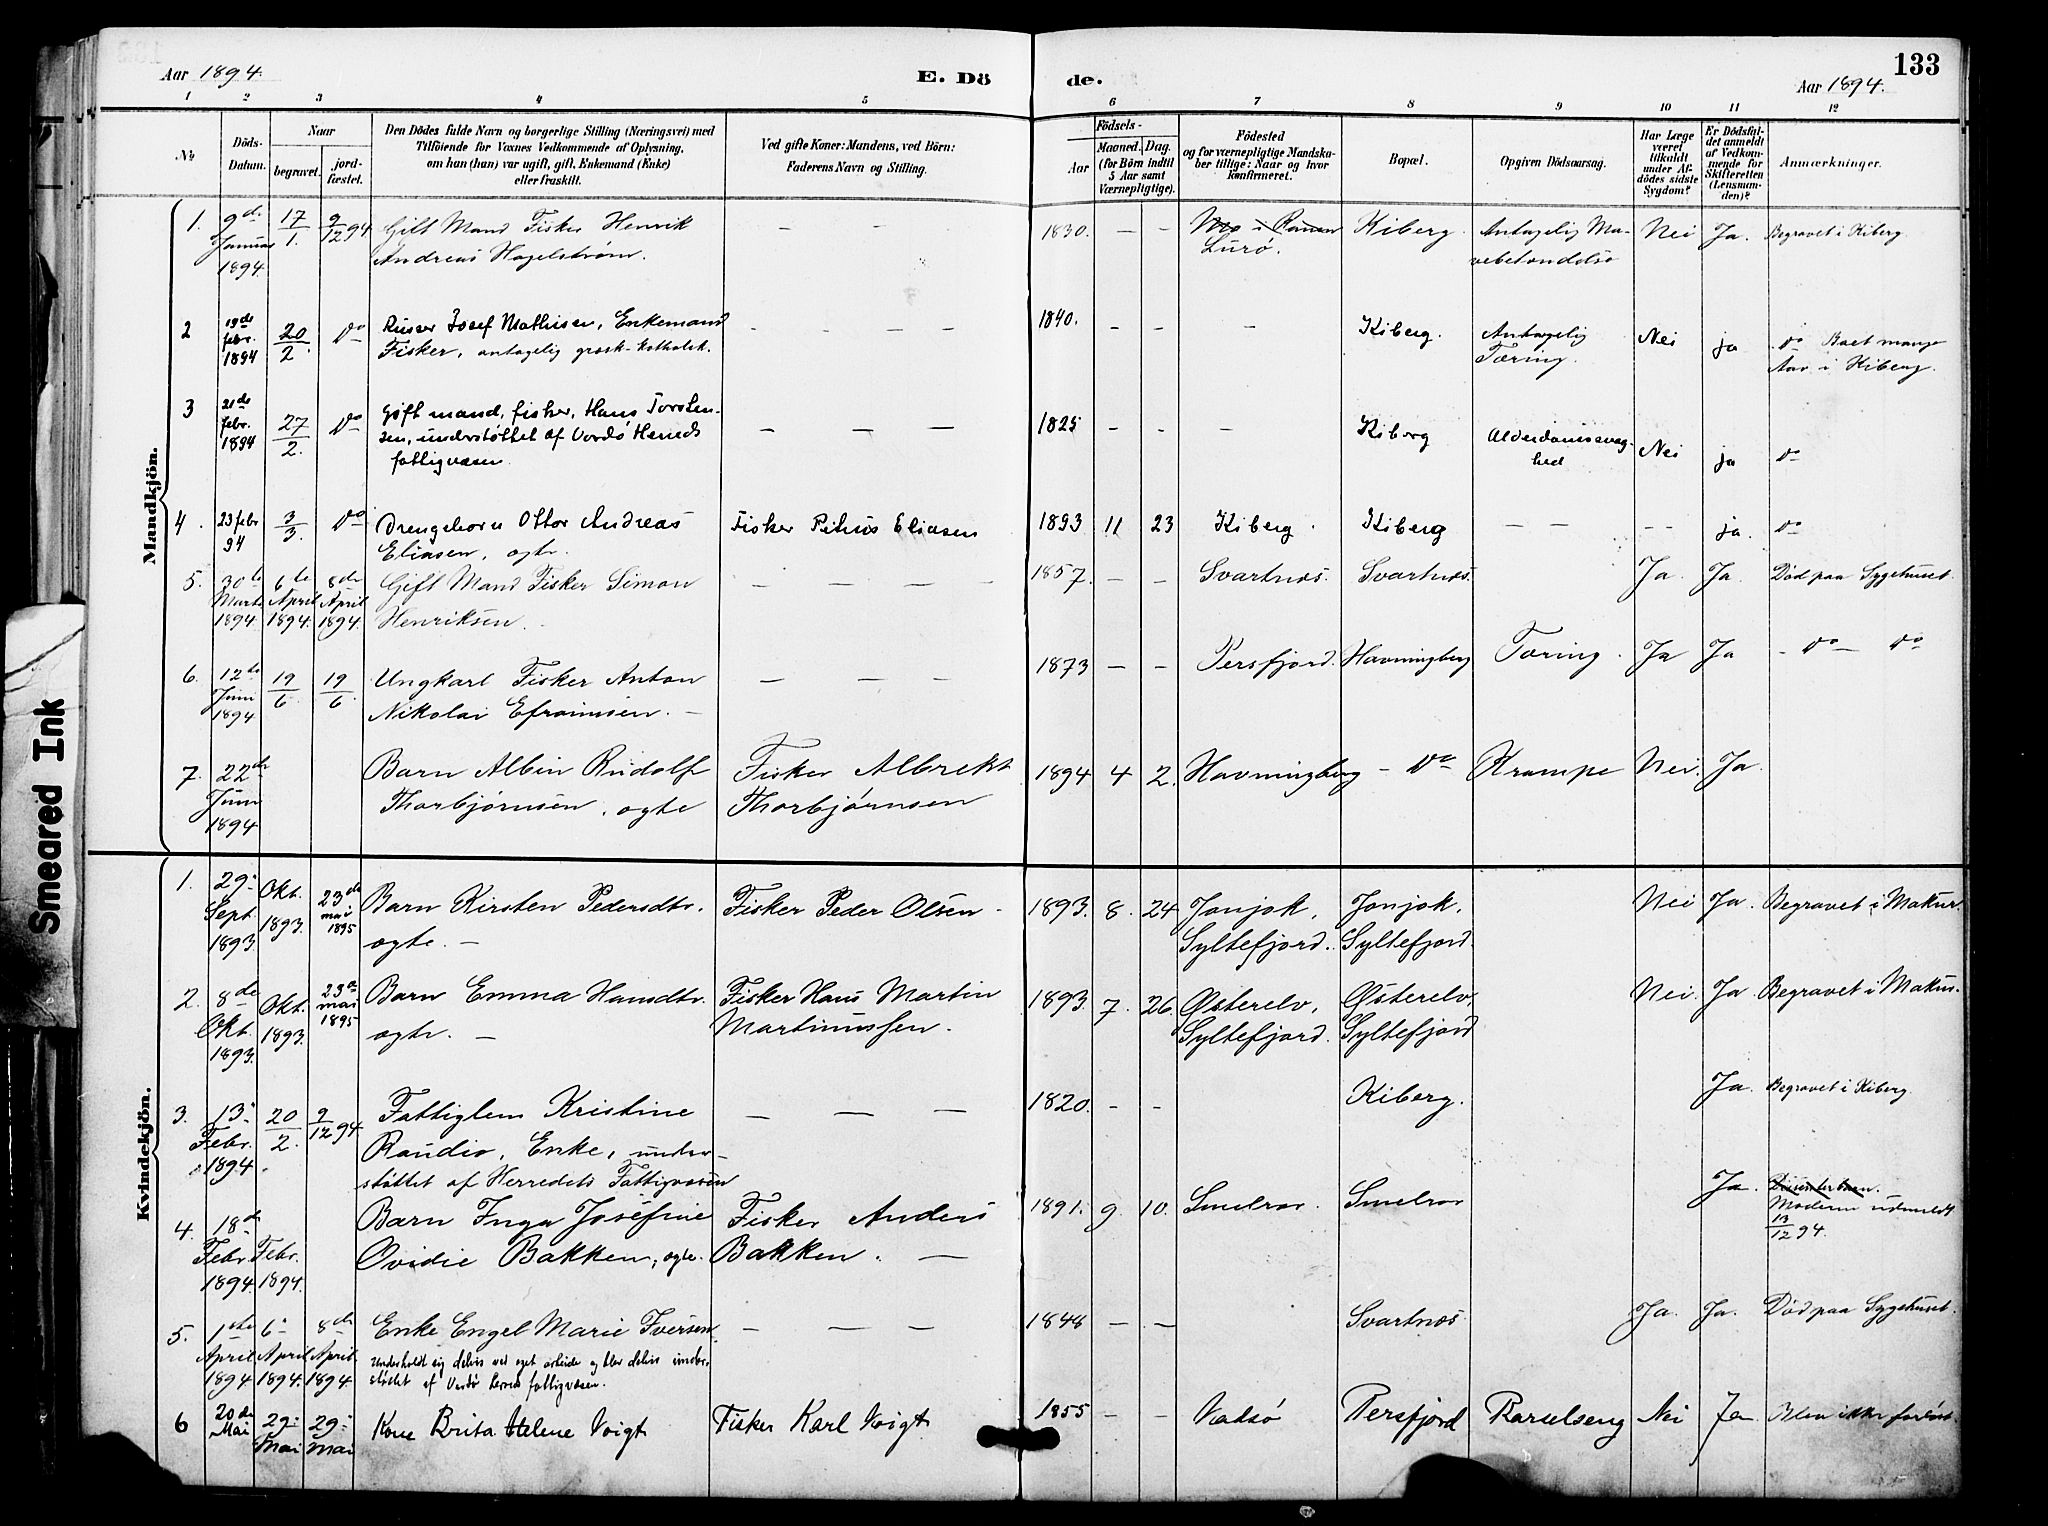 133
Aar 1894.
E. Dö
de.
Aar 1894.
1 2 3 4 5 6 7 8 9 10 11 12
No
Döds-
Datum.
Naar
begravet.
jord-
fæstet.
Den Dödes fulde Navn og borgerlige Stilling (Næringsvei) med
Tilföiende for Voxnes Vedkommende af Oplysning,
om han (hun) var ugift, gift, Enkemand (Enke)
eller fraskilt.
Ved gifte Koner: Mandens, ved Börn:
Faderens Navn og Stilling.
Födsels-
Aar
Maaned. Dag.
(for Börn indtil
5 Aar samt
Værnepligtige).
Födested
og for værnepligtige Mandska-
ber tillige: Naar og hvor
konfirmeret.
Bopæl.
Opgiven Dödsaarsag.
Har Læge
været
tilkaldt
under Af-
dödes sidste
Sygdom?
Er Dödsfal-
det anmeldt
af Vedkom-
mende for
Skifteretten
(Lensman-
den)?
Anmærkninger.
Mandkjön.
1. 9de Januar 1894. 17/1. 9/12 94
Gift Mand Fisker Henrik
Andreas Hagelstrøm.
— — —
1830. — — i Ranen
Lurø.
Kiberg.
Antagelig Ma-
vebetændelse
Nei Ja. Begravet i Kiberg.
2 19de febr. 1894 20/2. Do
Russer Josef Mathisen, Enkemand
Fisker, antagelig græsk-katholsk.
— — —
1840. — — — Kiberg.
Antagelig
Tæring.
Nei ja
do Boet mange
Aar i Kiberg.
3 21de febr. 1894 27/2. Do
Gift mand, fisker, Hans Torsten-
sen, understøttet af Vardø Herreds
fattigvæsen.
— — —
1825 — — — Kiberg
Alderdomssvag-
hed
Nei ja do
4. 23 febr 94 3/3. Do
Drengebarn Ottor Andreas
Eliasen, ægte.
Fisker Petrus Eliasen
1893 11 23 Kiberg. Kiberg — — -- ja. do
5. 30te Marts 1894. 6te April 1894. 8de April 1894.
Gift Mand Fisker Simon
Henriksen.
— — —
1857. — — Svartnæs. Svartnæs. Ja. Ja. Død paa Sygehuset.
6. 12te Juni 1894. 19/6. 19/6
Ungkarl Fisker Anton
Nikolai Efraimsen. —
— — —
1873 — — Persfjord. Havningberg Tæring. Ja Ja - do — do
7. 22de Juni 1894
Barn Albin Rudolf
Thorbjørnsen, ægte
Fisker Albrekt
Thorbjørnsen
1894 4 2. Havningberg — Do Krampe Nei. Ja.
Kvindekjön.
1. 29. Sept. 1893. Okt. 1893. 23de mai 1895
Barn Kirsten Pedersdtr.
ægte. —
Fisker Peder Olsen -
1893. 8. 24 Jonjok, Jonjok,
Syltefjord. Syltefjord.
Nei Ja. Begravet i Makur.
2. 8de Okt. 1893. Okt. 1893. 23de mai 1895
Barn Emma Hansdtr.
ægte. —
Fisker Hans Martin
Martinussen.
1893. 7. 26. Østerelv, Østerelv,
Syltefjord. Syltefjord
Nei. Ja. Begravet i Makur.
3. 13. Febr. 1894 20/2. 9/12 94
Fattiglem Kristine
Raudio, Enke, under-
støttet af Herredets Fattigvæsen
— — —
1820. - - Kiberg. Ja. Begravet i Kiberg
4. 18de Febr. 1894. Febr. 1894.
Barn Inga Josefine
Ovidie Bakken, ægte.
Fisker Anders
Bakken. —
1891. 9. 10. Smelror. Smelror Ja.
Dissenterbarn.
Moderen udmeldt
13/12 94.
5. 1ste April 1894 6. April 1894. 8de April 1894.
Enke Engel Marie Iversen
Underholdt sig delvis ved eget arbeide og blev delvis under-
støttet af Vardø herreds fattigvæsen.
— — —
1848 — — Svartnæs Ja. Ja. Død paa Sygehuset.
6 20de Mai 29. Mai 29. Mai
Kone Brita Helene Voigt
Fisker Karl Voigt
1855 - - Vadsø Persfjord Barselseng Nei Ja Blev ikke forløst.
Smeared Ink